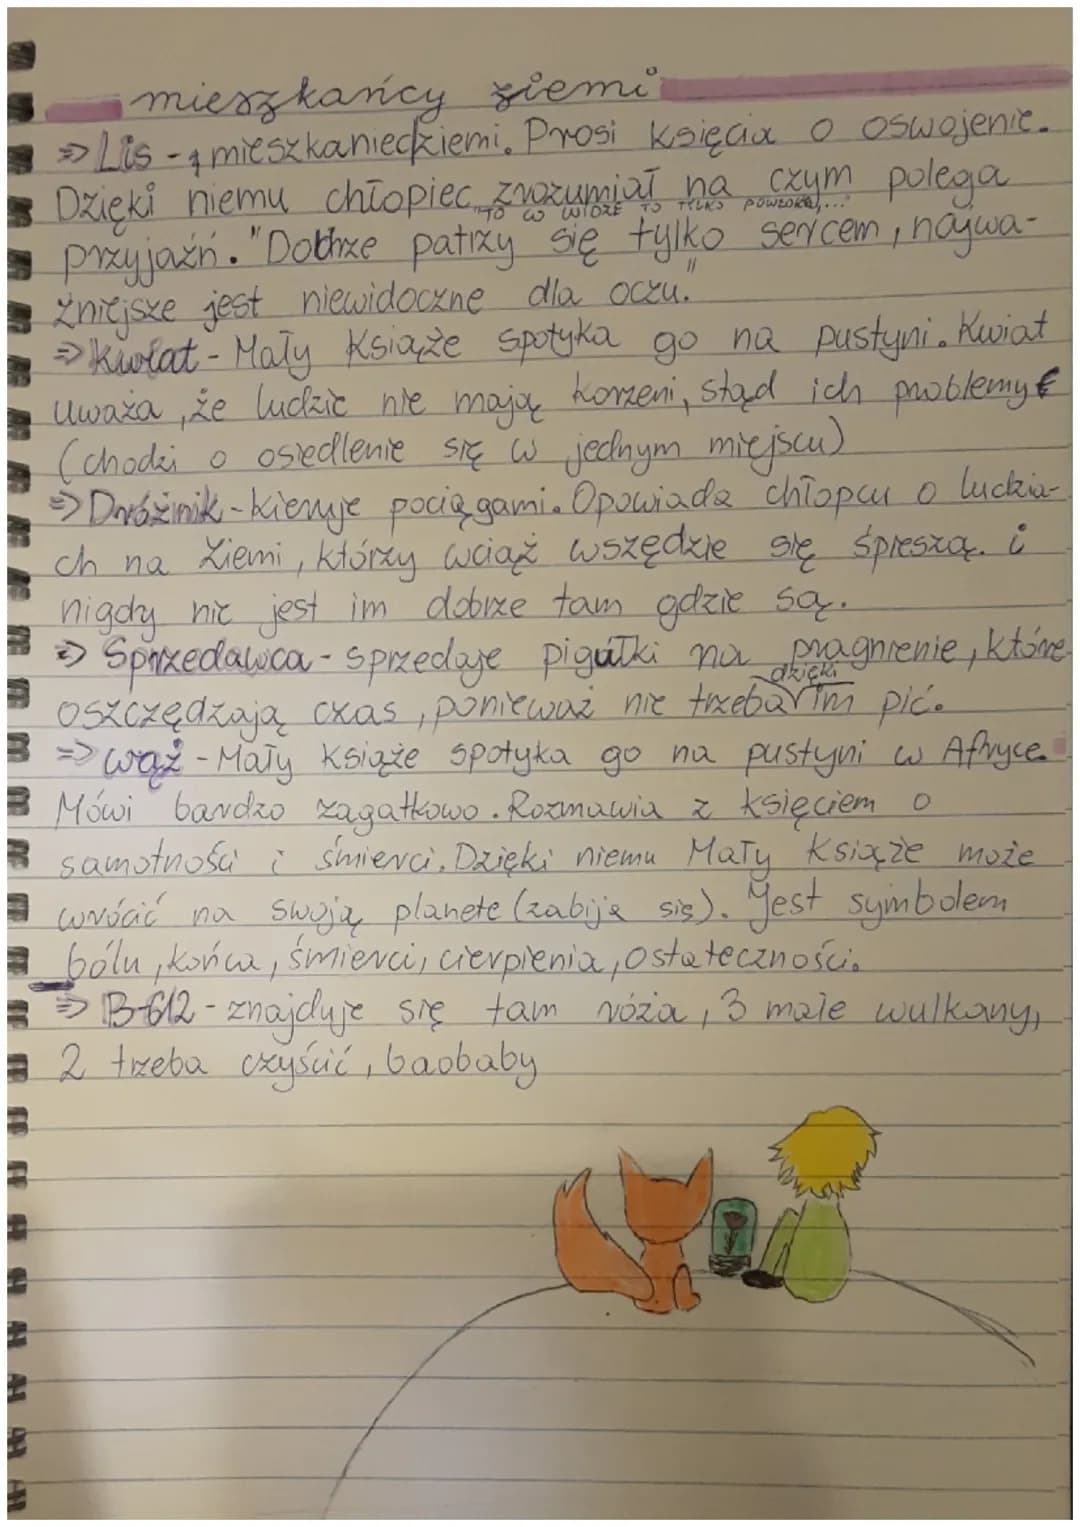 mieszkańcy ziemi
=> Lis - 1 mieszkaniec ziemi. Prosi księcia o oswojenie.
Dzięki niemu chłopiec zrozumiał na czym polega
"TO CO WIDZĘ TO TYLKO POWŁOKA,..."
przyjaźń. "Dobrze patrzy się tylko sercem, najwa-
żniejsze jest niewidoczne dla oczu."
=> Kwiat - Mały Książe spotyka go na pustyni. Kwiat
uważa, że ludzie nie mają korzeni, stąd ich problemy
(chodzi o osiedlenie się w jednym miejscu)
=> Dróżnik - kieruje pociągami. Opowiada chłopcu o ludzia-
ch na Ziemi, którzy wciąż wszędzie się śpieszą. i
nigdy nie jest im dobrze tam gdzie są.
=> Sprzedawca - sprzedaje pigułki na pragnienie, które
dzięki
oszczędzają czas, ponieważ nie trzeba im pić.
=> wąż - Mały Książe spotyka go na pustyni w Afryce.
Mówi bardzo zagatkowo. Rozmawia z księciem o
samotności i śmierci. Dzięki niemu Mały Książe może
wrócić na swoją planete (zabija się). Jest symbolem
bólu, końca, śmierci, cierpienia, ostateczności.
=> B-612 - znajduje się tam róża, 3 małe wulkany,
2 trzeba czyścić, baobaby